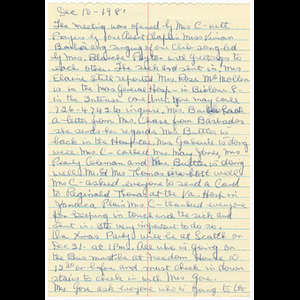 Dec 10-1981
The meeting was opened by Mrs C- with
Prayer by your Asst Chaplin Miss Vivian
singing your Club song led
by Mrs. Blanche with Greetings to
each other. The Sick and shut in Mrs
Elaine still reported Mrs Rose McMollen
is in the Mass General Hosp- in Bislow 8-
in the Intense care but you may call
726-4742 to inquire. Mrs B
a letter from Mrs. Chase from Barbados
she sends her regards Mrs Butler is
back in the Hospital Mrs Gabriel is doing
well Mrs C- called Mrs Mary Jones Mrs
Pearly Coleman and Mrs is doing
well. Mr & Mrs Thomas well
Mrs C- asked everyone to send a Card
to Reginald Thomas at the Va. Hosp in
Jamaica Plain Mrs C- thanked everyone
for keeping in touch with the sick and
shut in. its very important to do so.
The Xmas Party will be at
Dec 21- at 1 Pm. All who is going on
the Bus must be at Freedom House at
12 or before and must check in down
stairs to check in with Mrs Goe.
Mrs. Goe ask everyone who is going to the